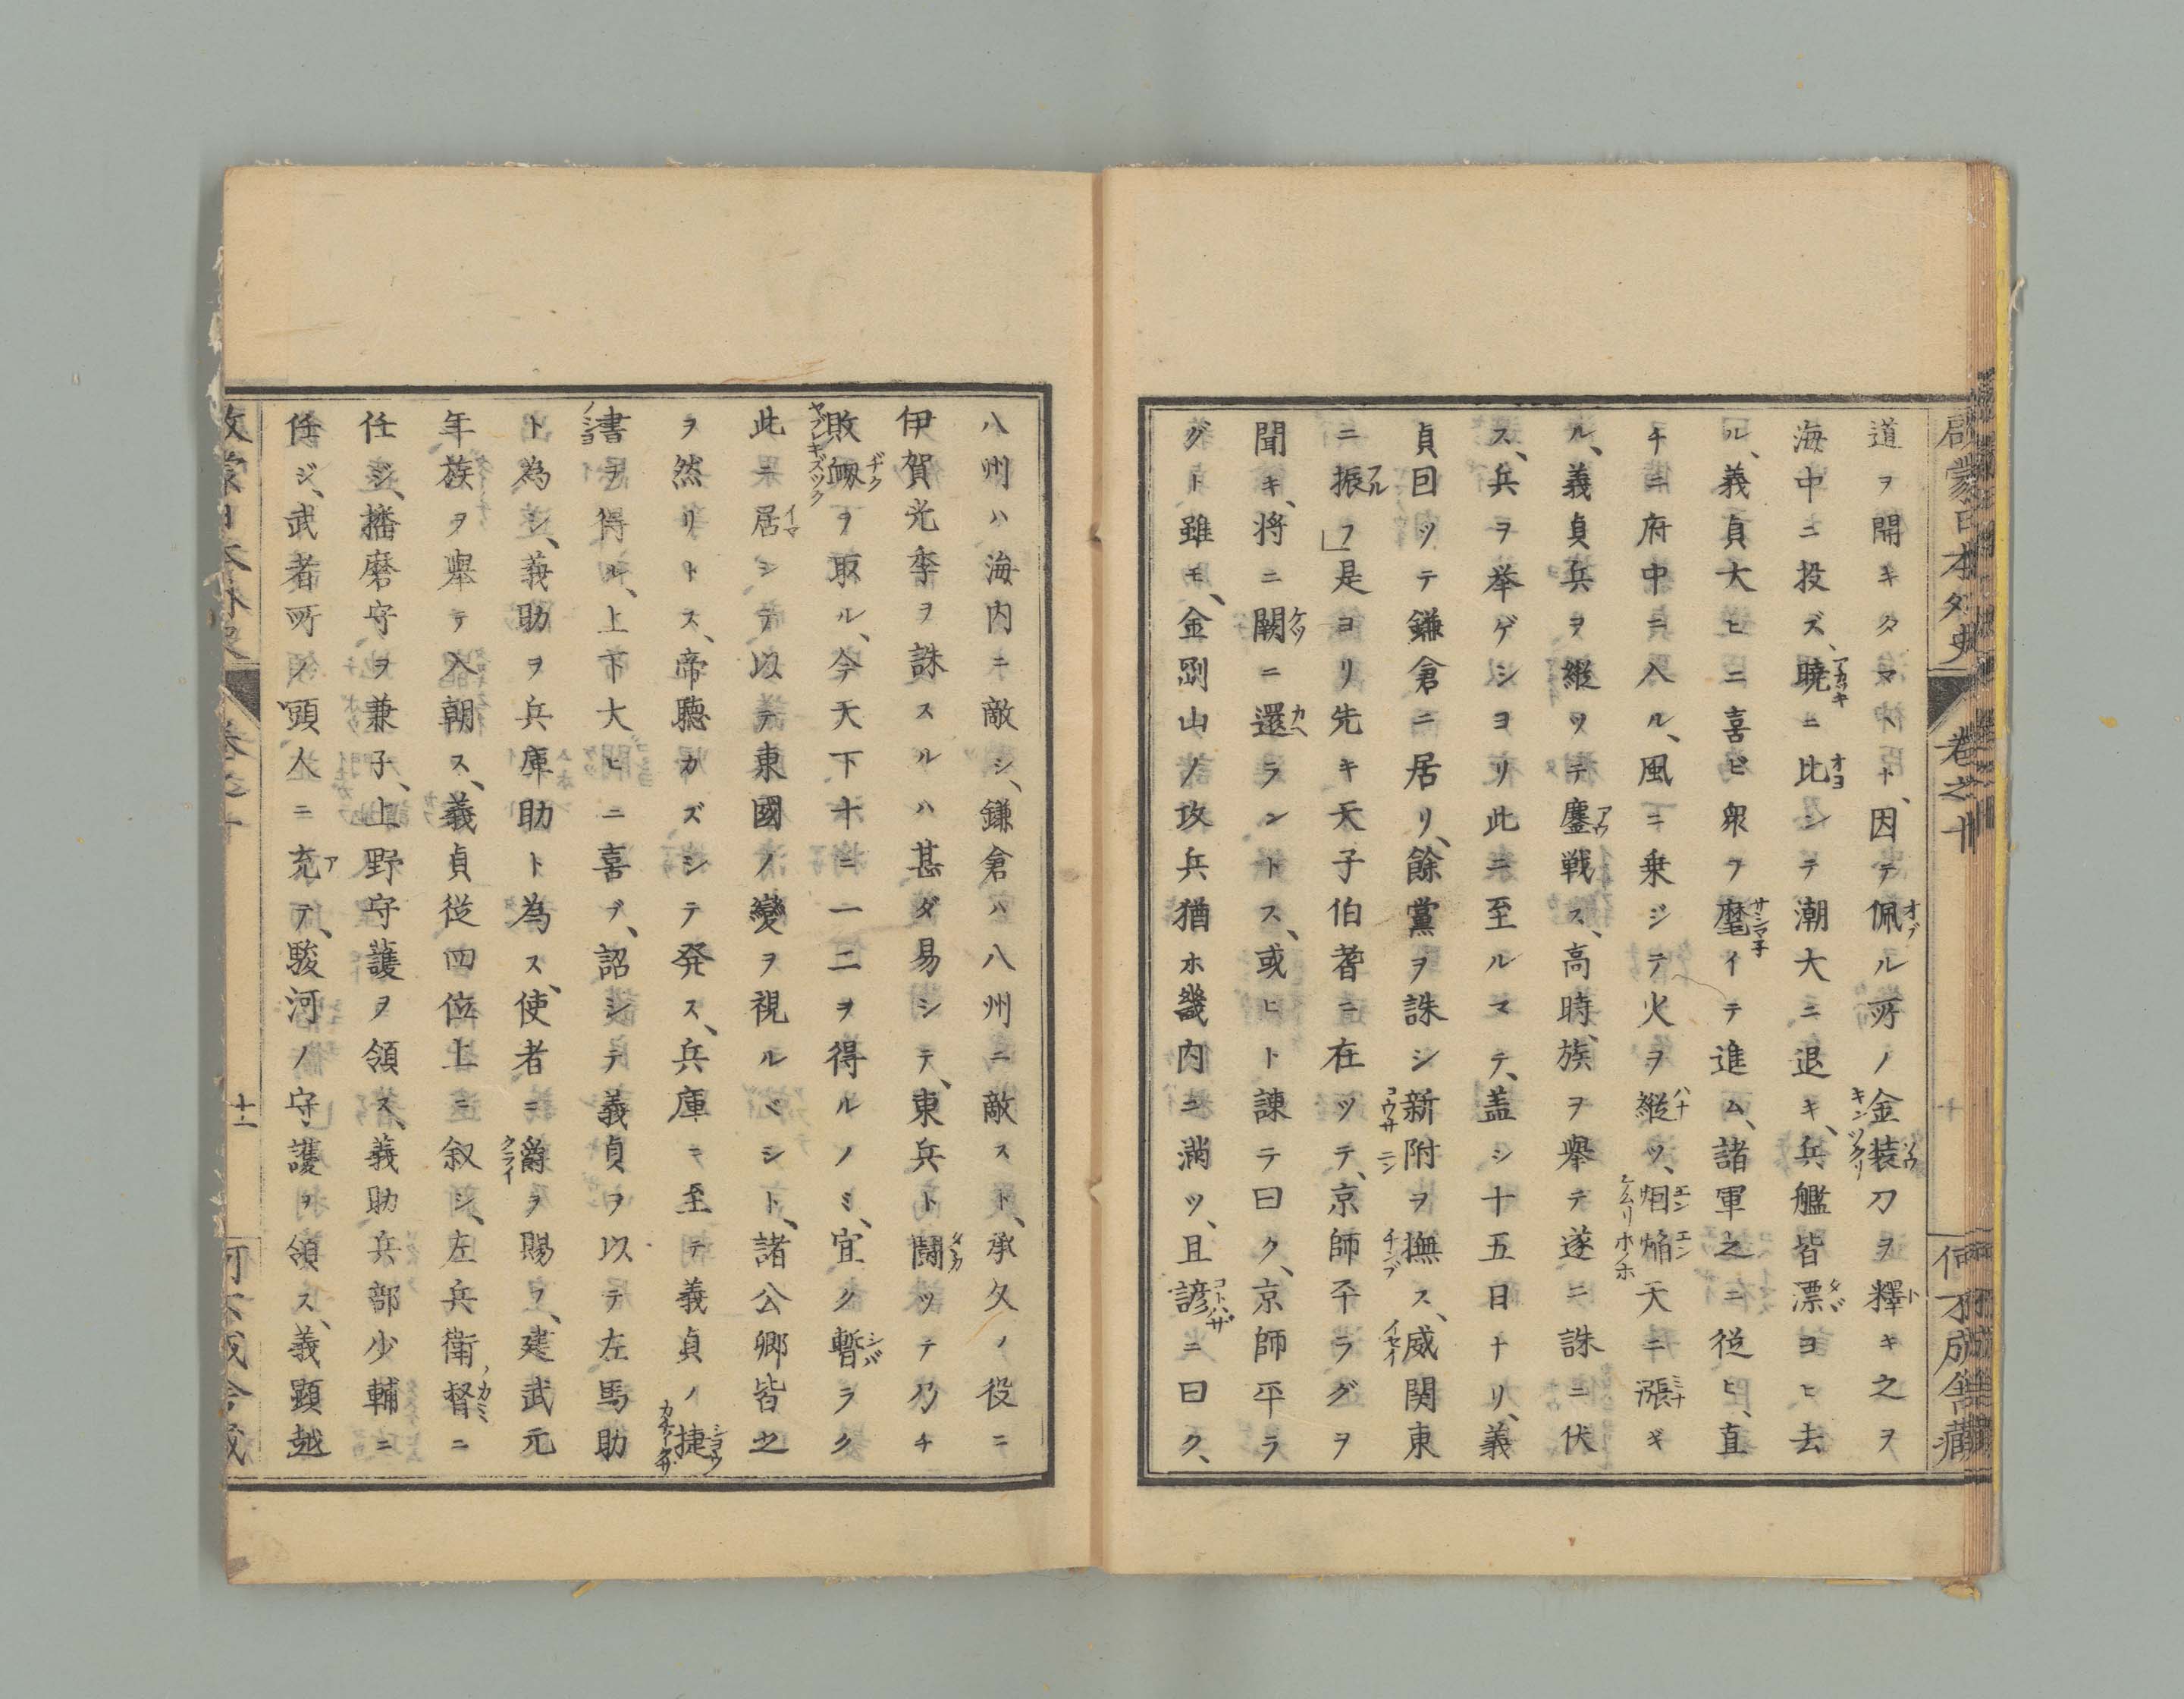 啓蒙日本外史 卷之十 何不成舎藏
道ヲ開キタマヘト、因テ佩ル所ノ金装刀ヲ釋キ之ヲ
海中ニ投ズ、曉ニ比シテ潮大ニ退キ、兵艦皆漂ヨヒ去
ル、義貞大ヒニ喜ビ衆ヲ麾イテ進ム、諸軍之ニ從ヒ、直
チニ府中ニ入ル、風ニ乗ジテ火ヲ縱ツ、烟焔天ニ漲ギ
ル、義貞兵ヲ縱ツテ鏖戦ス、高時、族ヲ舉テ遂ニ誅ニ伏
ス、兵ヲ举ゲシヨリ此ニ至ルマテ、盖シ十五日ナリ、義
貞囘ツテ鎌倉ニ居リ、餘黨ヲ誅シ新附ヲ撫ス、威関東
ニ振フ」是ヨリ先キ天子伯耆ニ在ツテ、京師平ラグヲ
聞キ、將ニ闕ニ還ラントス、或ヒト諫テ曰ク、京師平ラ
グト雖モ、金剛山ノ攻兵猶ホ畿内ニ満ツ、且諺ニ曰ク、
八州ハ海内ニ敵シ、鎌倉ハ八州ニ敵スト、承久ノ役ニ
伊賀光季ヲ誅スルハ甚ダ易シテ、東兵ト鬪ツテ乃チ
敗衂ヲ取ル、今天下十ニ一二ヲ得ルノミ、宜ク暫ラク
此ニ居シテ以テ東國ノ變ヲ視ルベシト、諸公卿皆之
ヲ然リトス、帝聴カズシテ発ス、兵庫ニ至テ義貞ノ捷
書ヲ得ル、上下大ヒニ喜ブ、詔シテ義貞ヲ以テ左馬助
ト為シ、義助ヲ兵庫助ト為ス、使者ニ爵ヲ賜フ、建武元
年族ヲ舉テ入朝ス、義貞從四位上ニ叙シ、左兵衛督ニ
任ジ、播磨守ヲ兼子、上野守護ヲ領ス、義助兵部少輔ニ
任ジ、武者所ノ頭人ニ充テ、駿河ノ守護ヲ領ス、義顕越
十一